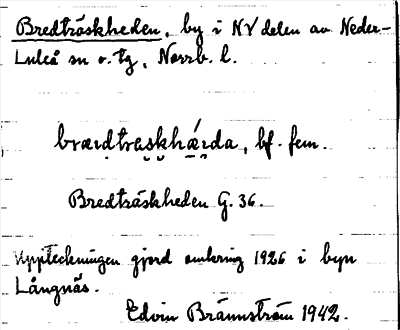 Bredträskheden, by i NV delen av Neder-
Luleå sn o. tg, Norrb. l.
brædtræskhárda, bf. fem.
Bredträskheden G. 36.
Uppteckningen gjord omkring 1926 i byn
Långnäs.
Edvin Brännström 1942.